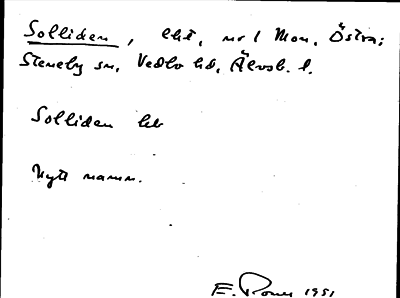 Solliden, lht, nr 1 Mon, Östra;
Steneby sn, Vedbo hd, Älvsb. l.
Solliden
Nytt namn.
E. 1951